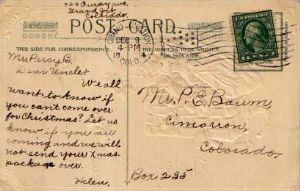 Ouray ave
Grand Jct
Colorado
POST CARD
GRAND JUNCTION
DEC 9
4 PM
COLO.
THIS SPACE FOR CORRESPONDENCE
THIS SIDE FOR ADDRESS
Mr Percy B.
Dear Uncle:
We all
want to know if
you can't come over
for Christmas? Let us
know if you are
coming and we will
not send your Xmas
package over.
Helen.
Mr. P. E. Baum,
Cimarron,
Colorado.
Box 235